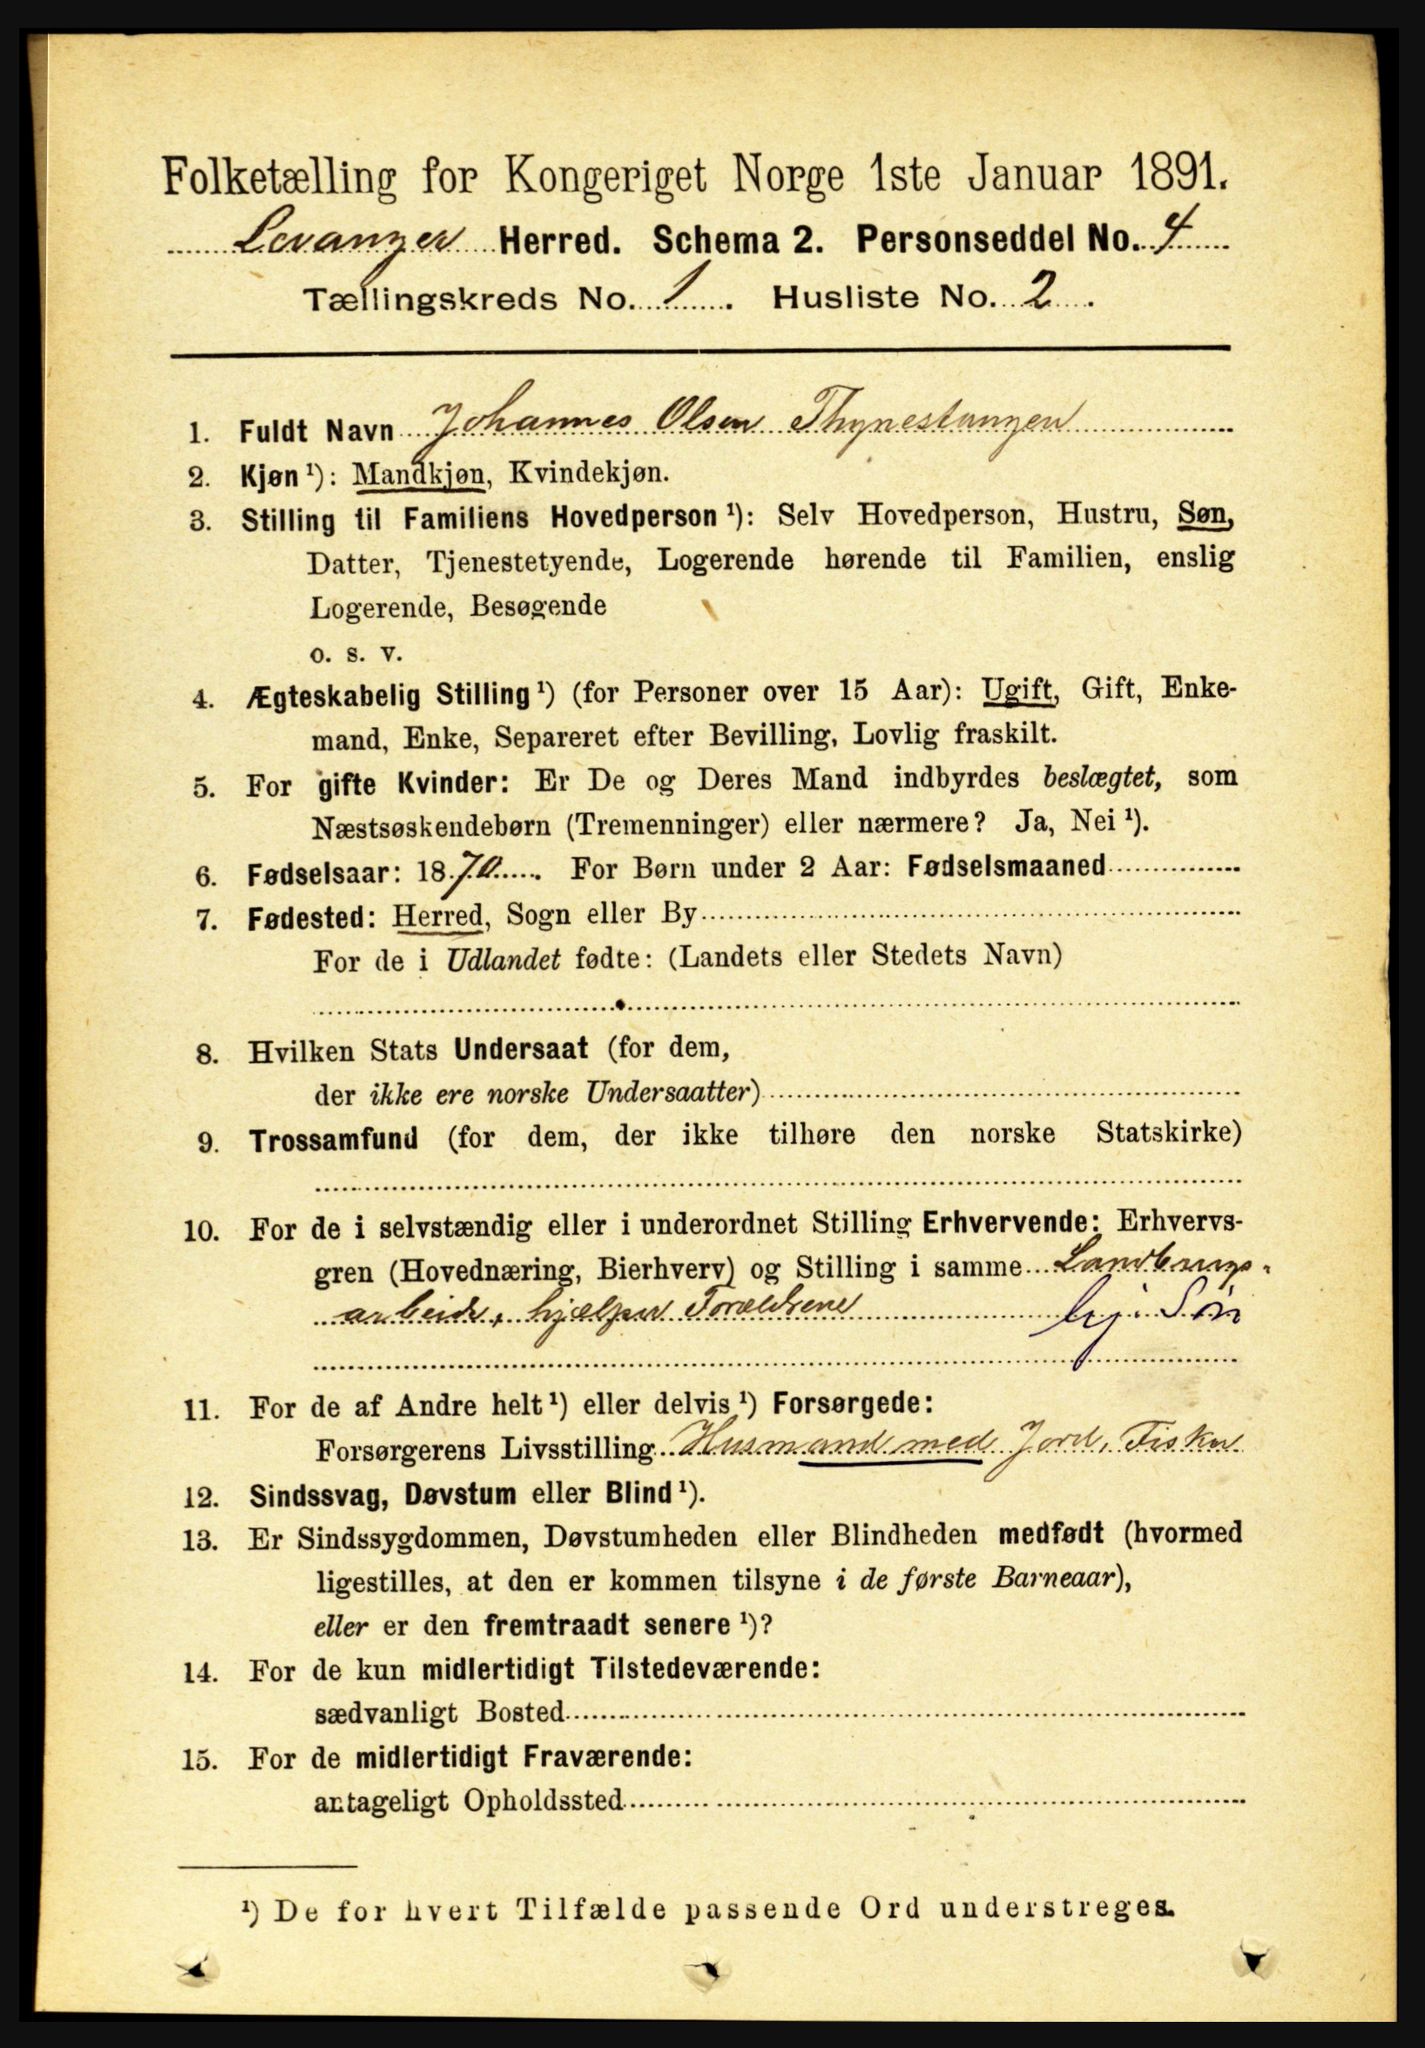 Folketælling for Kongeriget Norge 1ste Januar 1891.
Levanger Herred. Schema 2. Personseddel No. 4
Tællingskreds No. 1. Husliste No. 2.
1. Fuldt Navn Johannes Olsen Thynestangen
2. Kjøn ¹): Mandkjøn, Kvindekjøn.
3. Stilling til Familiens Hovedperson ¹): Selv Hovedperson, Hustru, Søn,
Datter, Tjenestetyende, Logerende hørende til Familien, enslig
Logerende, Besøgende
o. s. v.
4. Ægteskabelig Stilling ¹) (for Personer over 15 Aar): Ugift, Gift, Enke-
mand, Enke, Separeret efter Bevilling, Lovlig fraskilt.
5. For gifte Kvinder: Er De og Deres Mand indbyrdes beslægtet, som
Næstsøskendebørn (Tremenninger) eller nærmere? Ja, Nei ¹).
6. Fødselsaar: 1870. For Børn under 2 Aar: Fødselsmaaned
7. Fødested: Herred, Sogn eller By
For de i Udlandet fødte: (Landets eller Stedets Navn)
8. Hvilken Stats Undersaat (for dem,
der ikke ere norske Undersaatter)
9. Trossamfund (for dem, der ikke tilhøre den norske Statskirke)
10. For de i selvstændig eller i underordnet Stilling Erhvervende: Erhvervs-
gren (Hovednæring, Bierhverv) og Stilling i samme Landbrugs-
arbeide, hjælper Forældrene hj. Søn
11. For de af Andre helt ¹) eller delvis ¹) Forsørgede:
Forsørgerens Livsstilling Husmand med Jord, Fisker
12. Sindssvag, Døvstum eller Blind ¹).
13. Er Sindssygdommen, Døvstumheden eller Blindheden medfødt (hvormed
ligestilles, at den er kommen tilsyne i de første Barneaar),
eller er den fremtraadt senere ¹)?
14. For de kun midlertidigt Tilstedeværende:
sædvanligt Bosted
15. For de midlertidigt Fraværende:
antageligt Opholdssted
¹) De for hvert Tilfælde passende Ord understreges.